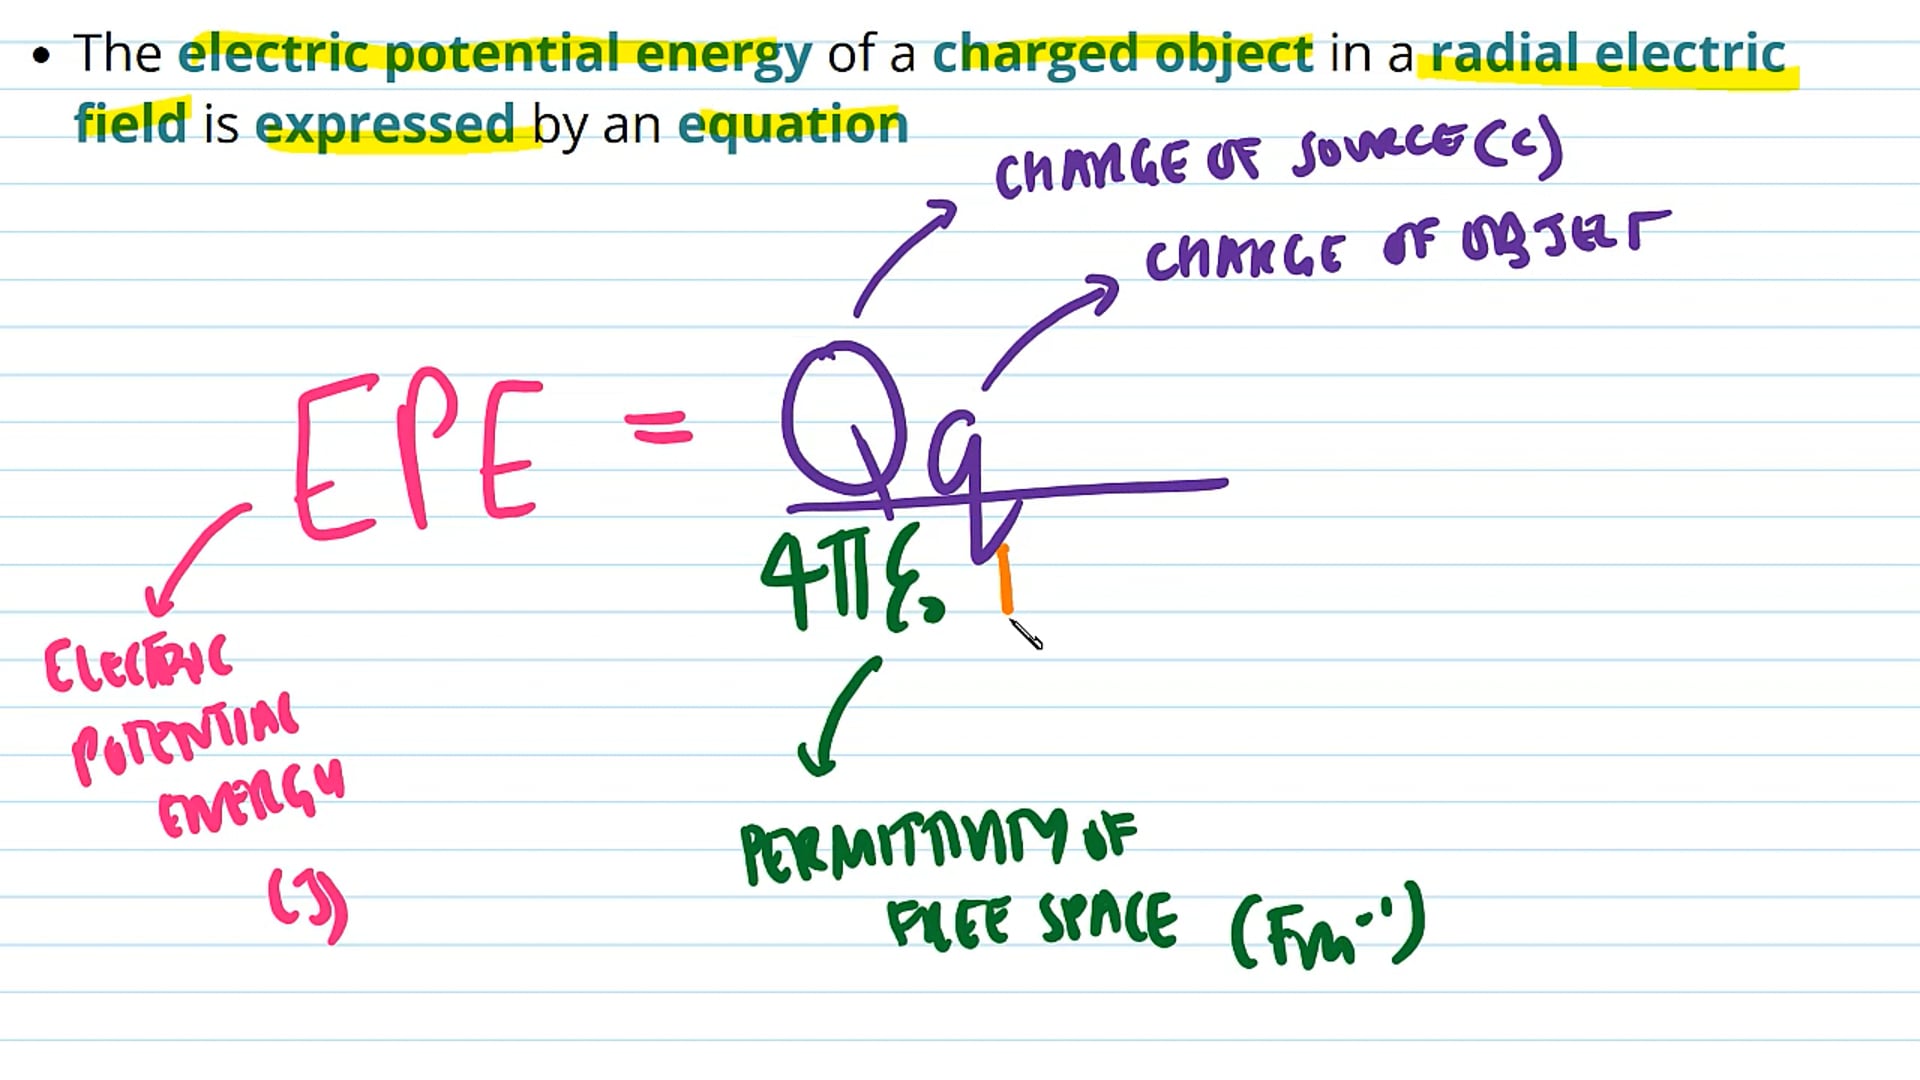 • The electric potential energy of a charged object in a radial electric
field is expressed by an equation
CHARGE OF SOURCE (C)
CHARGE OF OBJECT
EPE = Qq
4πε₀
ELECTRIC
POTENTIAL
ENERGY
(J)
PERMITTIVITY OF
FREE SPACE (Fm⁻¹)